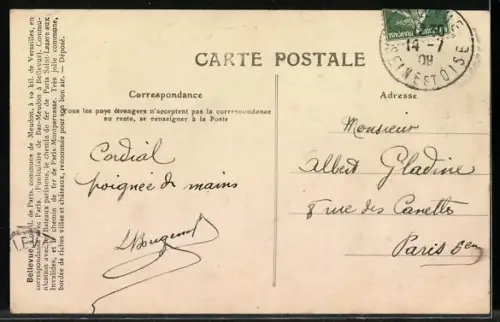 CARTE POSTALE
Correspondance
Tous les pays étrangers n'acceptent pas la correspondance
au recto, se renseigner à la Poste
Adresse
14 -7
09
SEINE ET OISE
Cordial
poignée de mains
Monsieur
Albert Gladine
8 rue des Canettes
Paris 6em
Bellevue, de Paris, commune de Meudon, à 10 kil. de Versailles, en
correspondance avec Paris. (Funiculaire de Bas-Meudon à Bellevue). Commu-
nication avec les Bateaux parisiens, le chemin de fer de Paris Saint-Lazare aux
Invalides, et le chemin de fer de Paris-Montparnasse. Très jolie commune,
bordée de riches villes et châteaux, renommée pour son bon air. — Déposé.